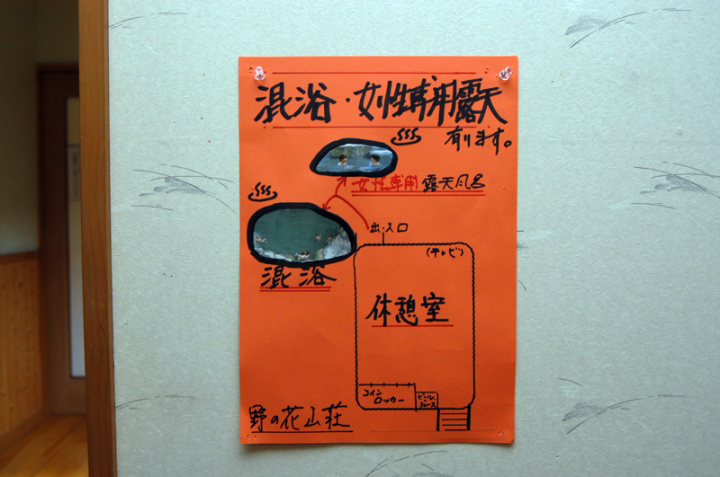 混浴・女性専用露天
有ります。
女性専用露天風呂
出・入口
混浴
(テレビ)
休憩室
コイン
ロッカー
ビール、
ジュース
野の花山荘